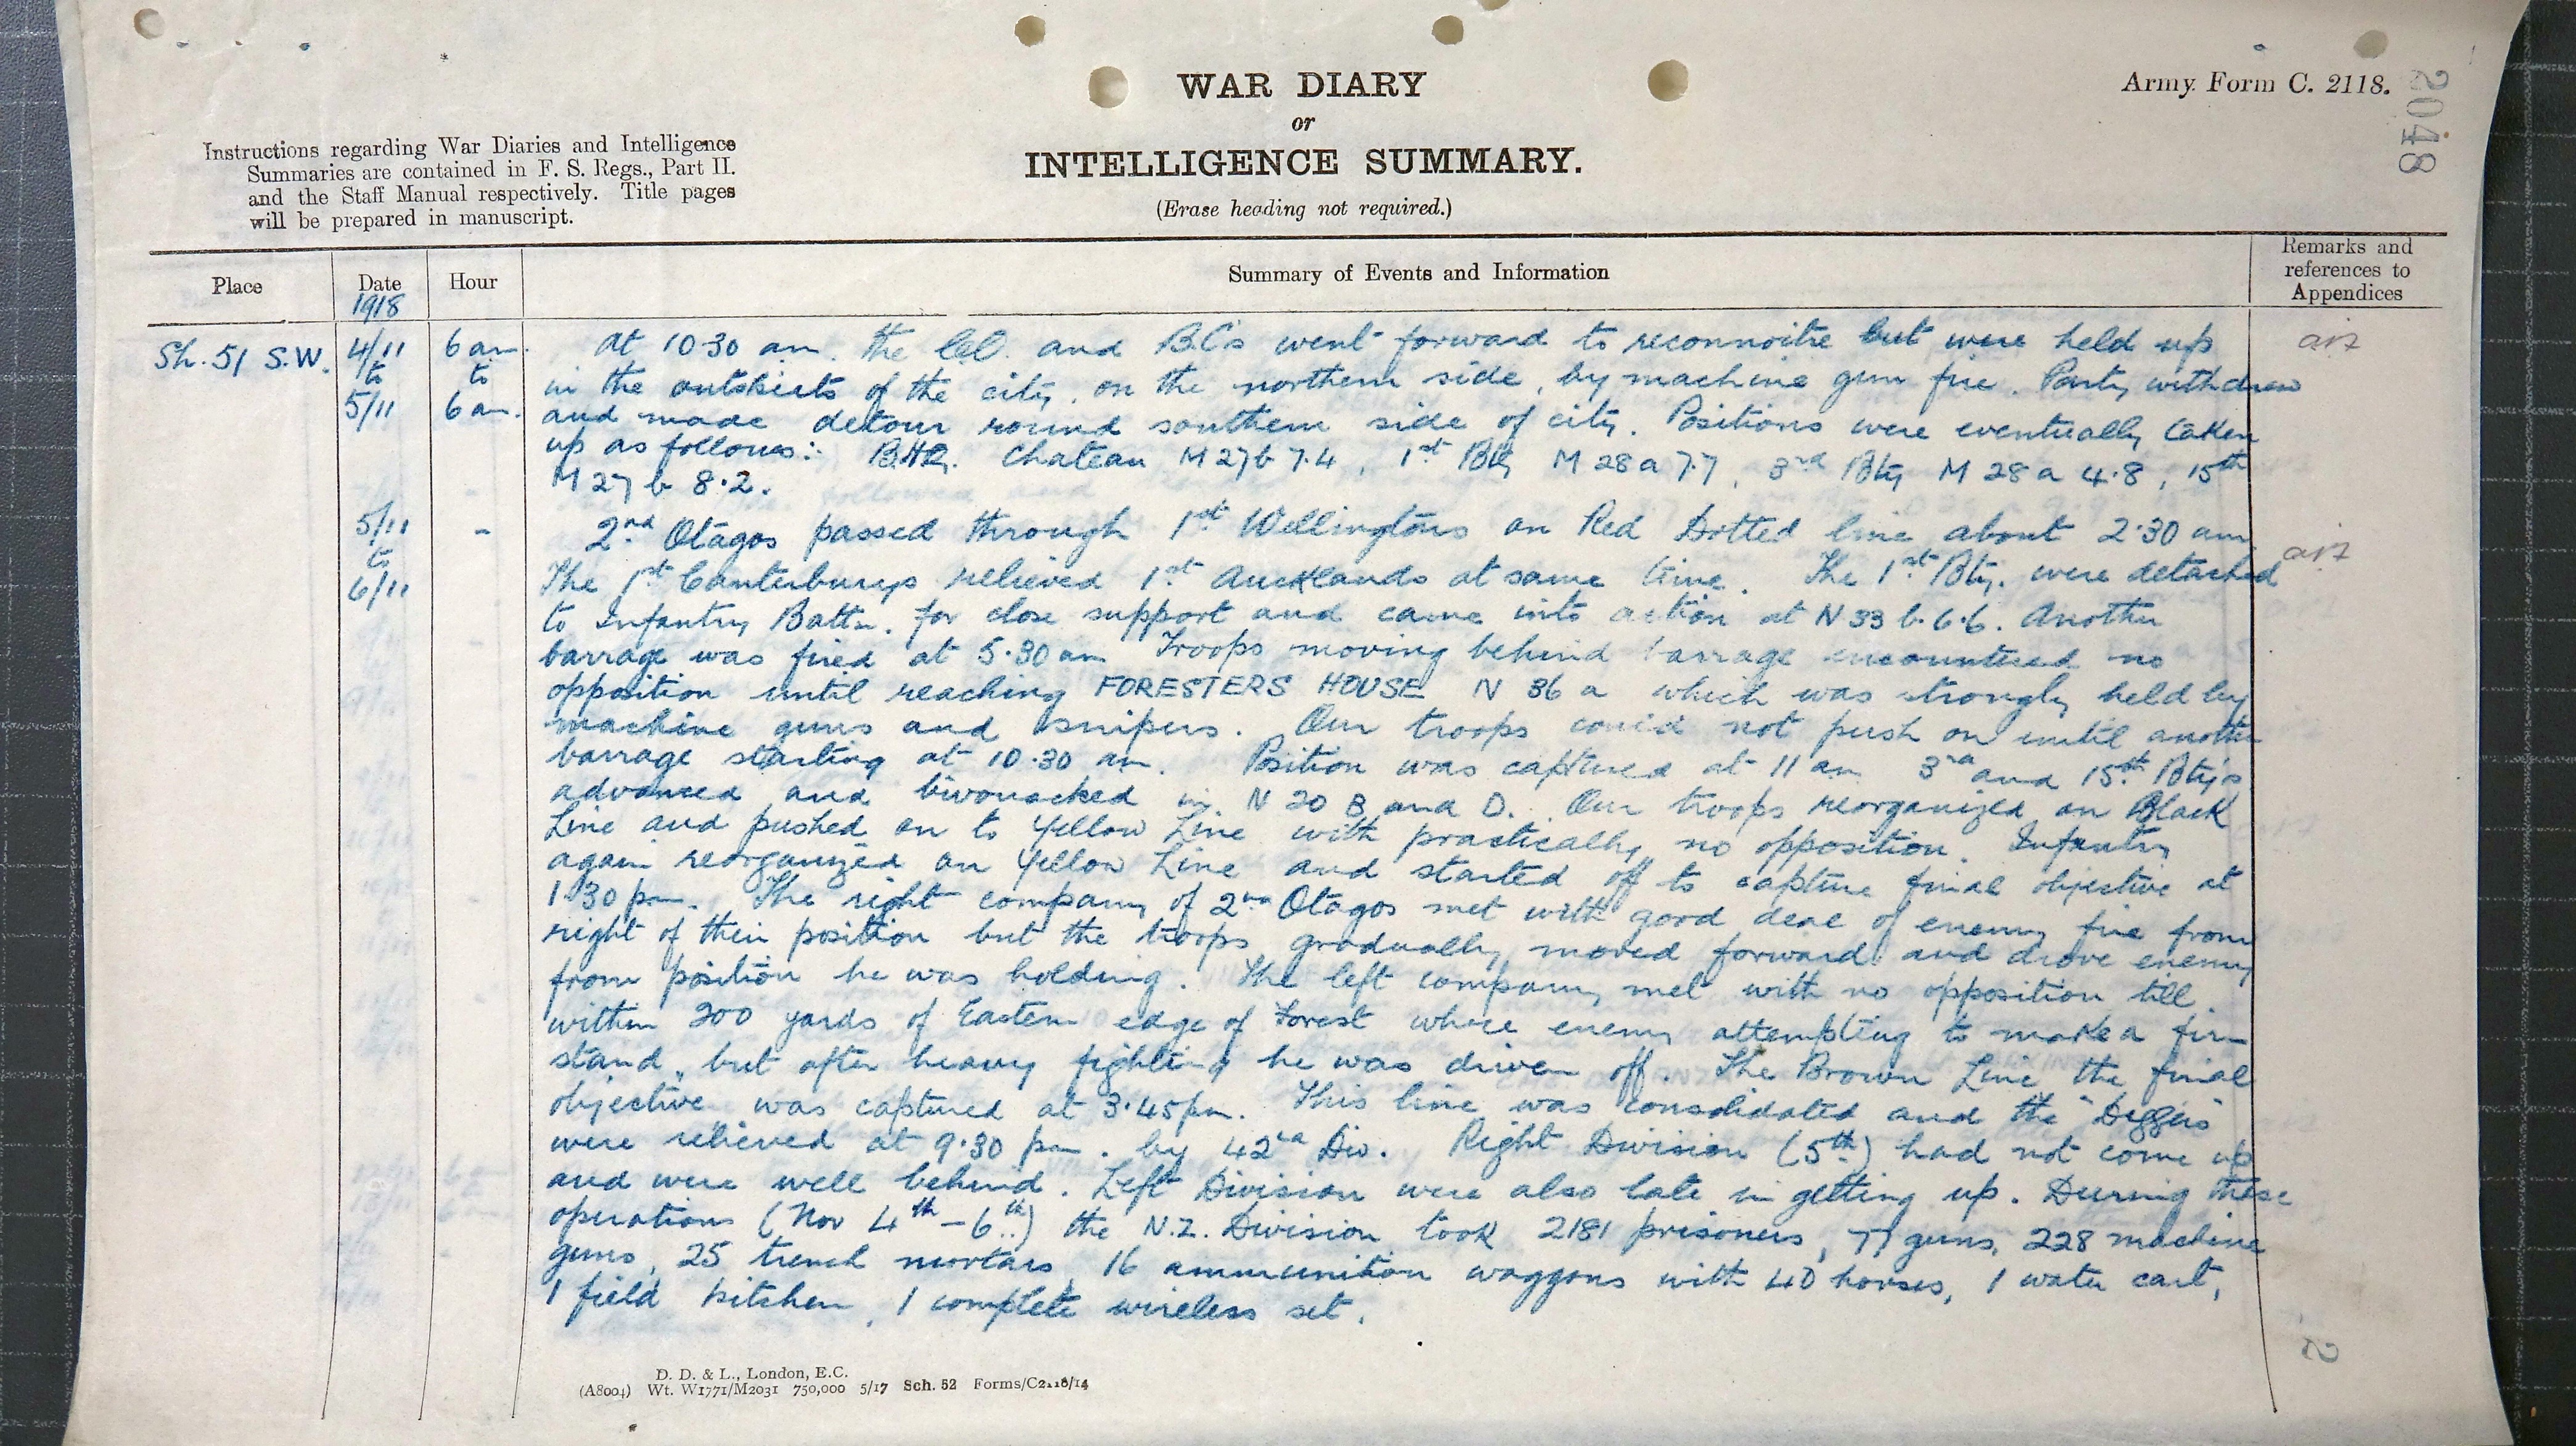 WAR DIARY
or
INTELLIGENCE SUMMARY.
(Erase heading not required.)
Army Form C. 2118.
2048
Instructions regarding War Diaries and Intelligence
Summaries are contained in F. S. Regs., Part II.
and the Staff Manual respectively. Title pages
will be prepared in manuscript.
Place
Date
1918
Hour
Summary of Events and Information
Remarks and
references to
Appendices
Sh. 51 S.W.
4/11
to
5/11
6 am.
to
6 am.
At 10.30 am. the C.O. and B.C's went forward to reconnoitre but were held up
in the outskirts of the city, on the northern side, by machine gun fire. Party withdrew
and made detour round southern side of city. Positions were eventually taken
up as follows:- B.H.Q. Chateau M 27 b 7.4, 1st Bty M 28 a 7.7, 3rd Bty M 28 a 4.8, 15th
M 27 b 8.2.
5/11
to
6/11
-
2nd Otagos passed through 1st Wellingtons on Red Dotted line about 2.30 am
The 1st Canterburys relieved 1st Aucklands at same time. The 1st Bty. were detached
to Infantry Battn. for close support and came into action at N 33 b. 6.6. Another
barrage was fired at 5.30 am Troops moving behind barrage encountered no
opposition until reaching FORESTERS HOUSE N 36 a which was strongly held by
machine guns and snipers. Our troops could not push on until another
barrage starting at 10.30 am. Position was captured at 11 am 3rd and 15th Bty's
advanced and bivouacked in N 20 B and D. Our troops reorganized on Black
Line and pushed on to Yellow Line with practically no opposition. Infantry
again reorganized on Yellow Line and started off to capture final objective at
1.30 pm. The right company of 2nd Otagos met with good deal of enemy fire from
right of their position but the troops gradually moved forward and drove enemy
from position he was holding. The left company met with no opposition till
within 200 yards of Eastern edge of Forest where enemy attempting to make a firm
stand, but after heavy fighting he was driven off. The Brown Line the final
objective was captured at 3.45 pm. This line was consolidated and the "Diggers"
were relieved at 9.30 pm. by 42nd Div. Right Division (5th) had not come up
and were well behind. Left Division were also late in getting up. During these
operations (Nov 4th - 6th) the N.Z. Division took 2181 prisoners, 77 guns, 228 machine
guns, 25 trench mortars, 16 ammunition waggons with 40 horses, 1 water cart,
1 field kitchen, 1 complete wireless set.
D. D. & L., London, E.C.
(A8004) Wt. W1771/M2031 750,000 5/17 Sch. 52 Forms/C2118/14